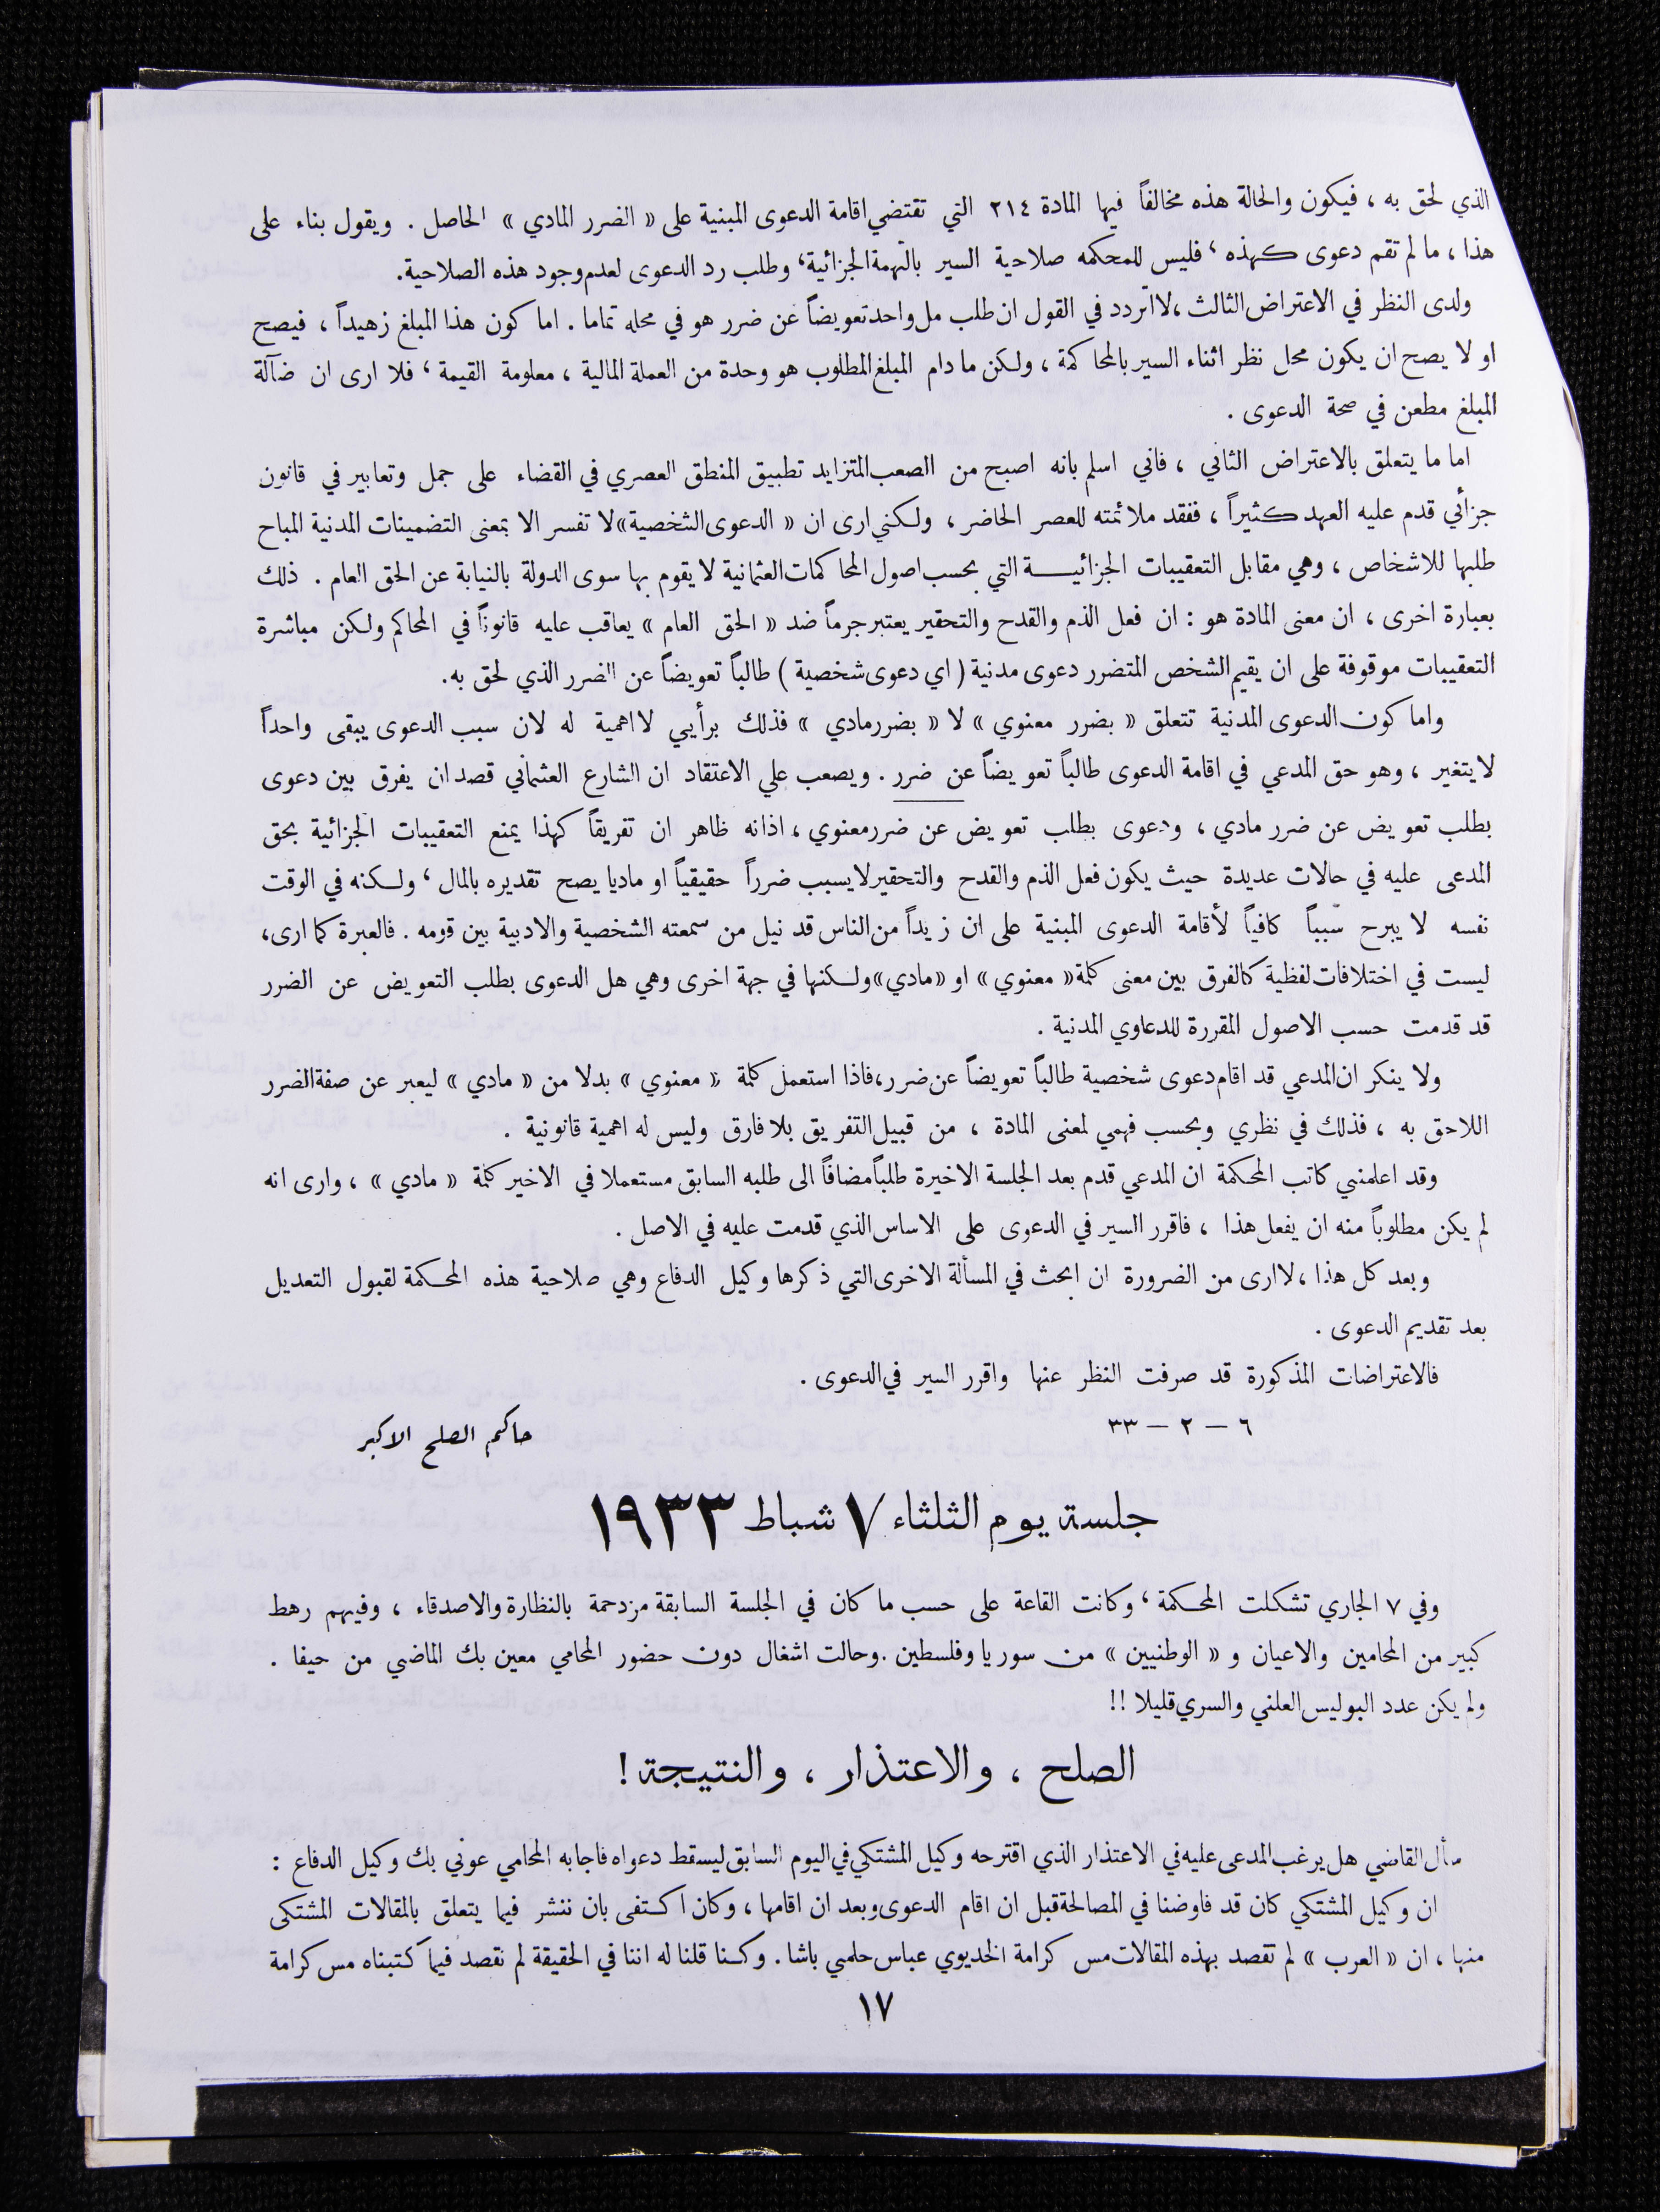 الذي لحق به ، فيكون والحالة هذه مخالفاً فيها المادة ٢١٤ التي تقتضي اقامة الدعوى المبنية على « الضرر المادي » الحاصل . ويقول بناء على
هذا ، ما لم تقم دعوى كهذه ، فليس للمحكمه صلاحية السير بالتهمة الجزائية، وطلب رد الدعوى لعدم وجود هذه الصلاحية.
ولدى النظر في الاعتراض الثالث ، لا اتردد في القول ان طلب مل واحد تعويضاً عن ضرر هو في محله تماما . اما كون هذا المبلغ زهيداً ، فيصح
او لا يصح ان يكون محل نظر اثناء السير بالمحاكمة ، ولكن ما دام المبلغ المطلوب هو وحدة من العملة المالية ، معلومة القيمة ، فلا ارى ان ضآلة
المبلغ مطعن في صحة الدعوى .
اما ما يتعلق بالاعتراض الثاني ، فاني اسلم بانه اصبح من الصعب المتزايد تطبيق المنطق العصري في القضاء على جمل وتعابير في قانون
جزائي قدم عليه العهد كثيراً ، ففقد ملائمته للعصر الحاضر ، ولكني ارى ان « الدعوى الشخصية» لا تفسر الا بمعنى التضمينات المدنية المباح
طلبها للاشخاص ، وهي مقابل التعقيبات الجزائيـــة التي بحسب اصول المحاكمات العثمانية لا يقوم بها سوى الدولة بالنيابة عن الحق العام . ذلك
بعبارة اخرى ، ان معنى المادة هو : ان فعل الذم والقدح والتحقير يعتبر جرماً ضد « الحق العام » يعاقب عليه قانوناً في المحاكم ولكن مباشرة
التعقيبات موقوفة على ان يقيم الشخص المتضرر دعوى مدنية ( اي دعوى شخصية ) طالباً تعويضاً عن الضرر الذي لحق به.
واما كون الدعوى المدنية تتعلق « بضرر معنوي » لا « بضرر مادي » فذلك برأيي لا اهمية له لان سبب الدعوى يبقى واحداً
لا يتغير ، وهو حق المدعي في اقامة الدعوى طالباً تعويضاً عن ضرر . ويصعب علي الاعتقاد ان الشارع العثماني قصد ان يفرق بين دعوى
بطلب تعويض عن ضرر مادي ، ودعوى بطلب تعويض عن ضرر معنوي ، اذ انه ظاهر ان تفريقاً كهذا يمنع التعقيبات الجزائية بحق
المدعى عليه في حالات عديدة حيث يكون فعل الذم والقدح والتحقير لا يسبب ضرراً حقيقياً او ماديا يصح تقديره بالمال ، ولكنه في الوقت
نفسه لا يبرح سبباً كافياً لأقامة الدعوى المبنية على ان زيداً من الناس قد نيل من سمعته الشخصية والادبية بين قومه . فالعبرة كما ارى،
ليست في اختلافات لفظية كالفرق بين معنى كلمة « معنوي » او «مادي» ولكنها في جهة اخرى وهي هل الدعوى بطلب التعويض عن الضرر
قد قدمت حسب الاصول المقررة للدعاوي المدنية .
ولا ينكر ان المدعي قد اقام دعوى شخصية طالباً تعويضاً عن ضرر، فاذا استعمل كلمة « معنوي » بدلا من « مادي » ليعبر عن صفة الضرر
اللاحق به ، فذلك في نظري وبحسب فهمي لمعنى المادة ، من قبيل التفريق بلا فارق وليس له اهمية قانونية .
وقد اعلمني كاتب المحكمة ان المدعي قدم بعد الجلسة الاخيرة طلباً مضافاً الى طلبه السابق مستعملا في الاخير كلمة « مادي » ، وارى انه
لم يكن مطلوباً منه ان يفعل هذا ، فاقرر السير في الدعوى على الاساس الذي قدمت عليه في الاصل .
وبعد كل هذا ، لا ارى من الضرورة ان ابحث في المسألة الاخرى التي ذكرها وكيل الدفاع وهي صلاحية هذه المحكمة لقبول التعديل
بعد تقديم الدعوى .
فالاعتراضات المذكورة قد صرفت النظر عنها واقرر السير في الدعوى .
٦ – ٢ – ٣٣
حاكم الصلح الاكبر
جلسة يوم الثلثاء ٧ شباط ١٩٣٣
وفي ٧ الجاري تشكلت المحكمة ، وكانت القاعة على حسب ما كان في الجلسة السابقة مزدحمة بالنظارة والاصدقاء ، وفيهم رهط
كبير من المحامين والاعيان و « الوطنيين » من سوريا وفلسطين . وحالت اشغال دون حضور المحامي معين بك الماضي من حيفا .
ولم يكن عدد البوليس العلني والسري قليلا !!
الصلح ، والاعتذار ، والنتيجة !
سأل القاضي هل يرغب المدعى عليه في الاعتذار الذي اقترحه وكيل المشتكي في اليوم السابق ليسقط دعواه فاجابه المحامي عوني بك وكيل الدفاع :
ان وكيل المشتكي كان قد فاوضنا في المصالحة قبل ان اقام الدعوى وبعد ان اقامها ، وكان اكتفى بان ننشر فيما يتعلق بالمقالات المشتكى
منها ، ان « العرب » لم تقصد بهذه المقالات مس كرامة الخديوي عباس حلمي باشا . وكنا قلنا له اننا في الحقيقة لم نقصد فيما كتبناه مس كرامة
١٧